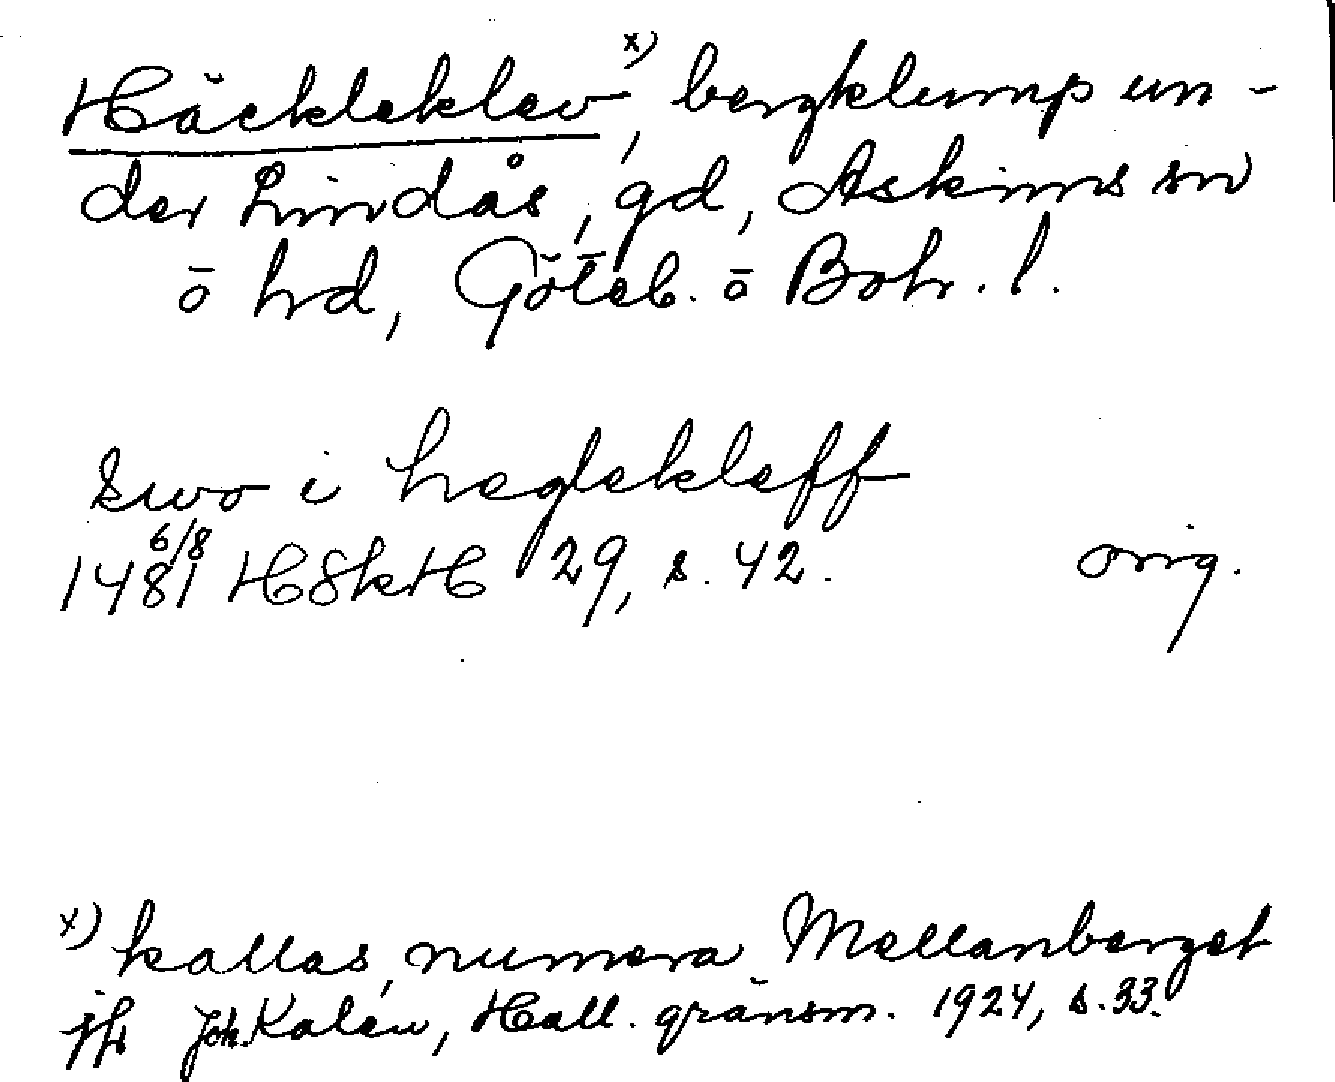 Häckleklev x), bergklump un-
der Lindås, gd, Askims sn
ō hrd, Göteb. ō Boh. l.
swo i heglekleff
1481 6/8 HSkH 29, s. 42. orig.
x) kallas numera Mellanberget
jfr Joh. Kalén, Hall. gränsm. 1924, s. 33.